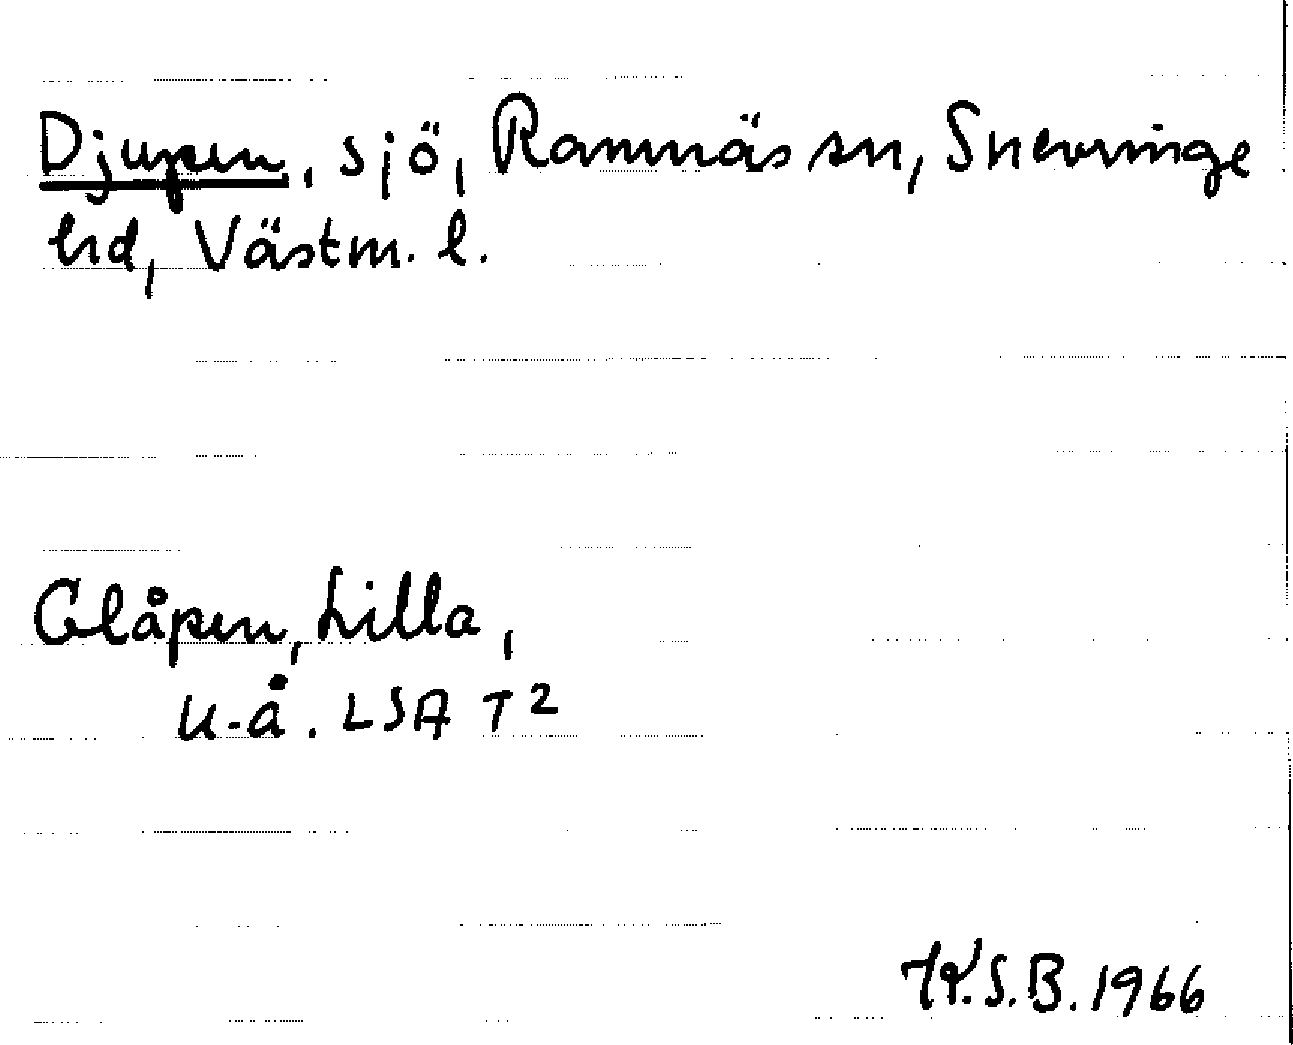 Djupen, sjö, Ramnäs sn, Snevringe
hd, Västm. l.
Glåpen, Lilla,
u-å. LSA T2
K.S.B. 1966